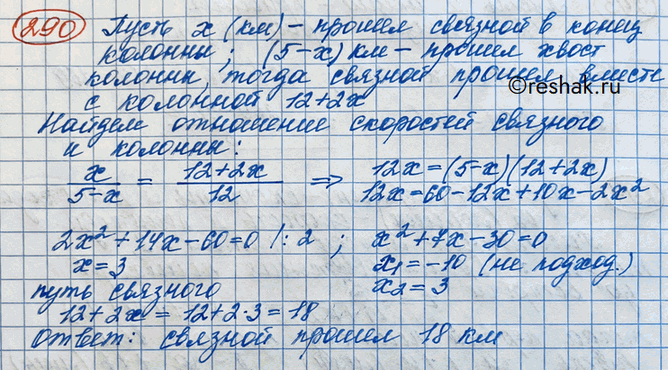 290 Пусть x (км) – прошел связной в конец
колонны; (5-x) км – прошел хвост
колонны, тогда связной прошел вместе
с колонной 12+2x
©reshak.ru
Найдем отношение скоростей связного
и колонны:
x/(5-x) = (12+2x)/12 ⇒ 12x=(5-x)(12+2x)
12x=60-12x+10x-2x²
2x²+14x-60=0 /:2 ; x²+7x-30=0
x=3 x₁=-10 (не подход.)
путь связного x₂=3
12+2x = 12+2·3 = 18
Ответ: связной прошел 18 км